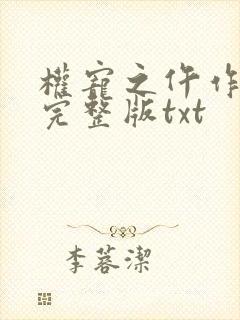 權寵之仵作
完整版txt
李蓉潔